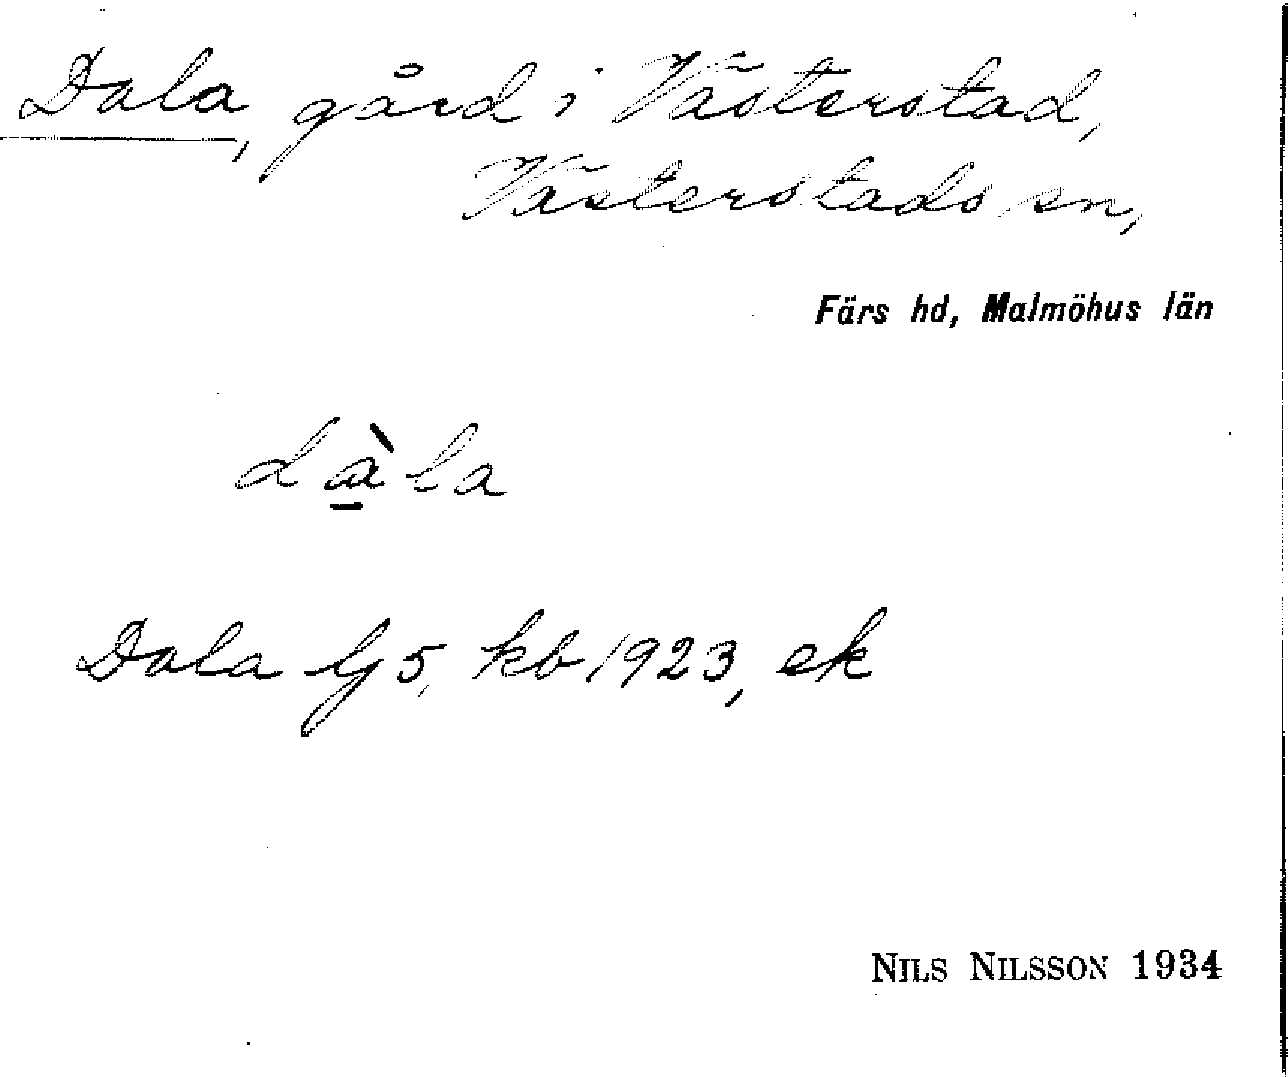 Dala, gård i Västerstad,
Västerstads sn,
Färs hd, Malmöhus län
dàla
Dala lj 5, kb 1923, ek
NILS NILSSON 1934